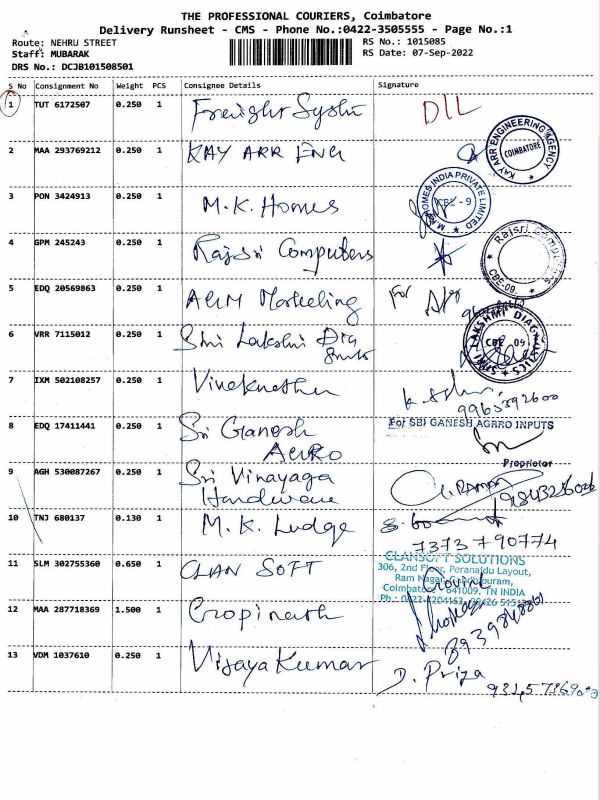 THE PROFESSIONAL COURIERS, Coimbatore
Delivery Runsheet - CMS - Phone No.:0422-3505555 - Page No.:1
Route: NEHRU STREET
RS No.: 1015085
Staff: MUBARAK
RS Date: 07-Sep-2022
DRS No.: DCJB101508501
S No Consignment No Weight PCS Consignee Details Signature
1 TUT 6172507 0.250 1 Freight DIL
2 MAA 293769212 0.250 1 KAY ARR ENG
KAY ARR ENGINEERING AGENCY
COIMBATORE
3 PON 3424913 0.250 1 M.K. Homes
M.K. HOMES INDIA PRIVATE LIMITED
CBE - 9
4 GPM 245243 0.250 1 Rajsri Computers
Rajsri Computers
CBE-09.
5 EDQ 20569863 0.250 1 Marketing For
6 VRR 7115012 0.250 1 Shri Lakshmi
SHRI LAKSHMI DIAGNOSTICS
CBE 09
7 IXM 502108257 0.250 1
9965392600
8 EDQ 17411441 0.250 1 Sri Ganesh
AGRO
For SBI GANESH AGRRO INPUTS
Proprietor
9 AGH 530087267 0.250 1 Sri Vinayaga
Hardware
10 TNJ 680137 0.130 1 M.K. Lodge
7373790774
11 SLM 302755360 0.650 1 CLAN SOFT
CLANSOFT SOLUTIONS
306, 2nd Floor, Peranaidu Layout,
Ram Nagar, Gandhipuram,
Coimbatore - 641009. TN INDIA
12 MAA 287718369 1.500 1 Gopinath
13 VDM 1037610 0.250 1 Vijaya Kumar D. Priya